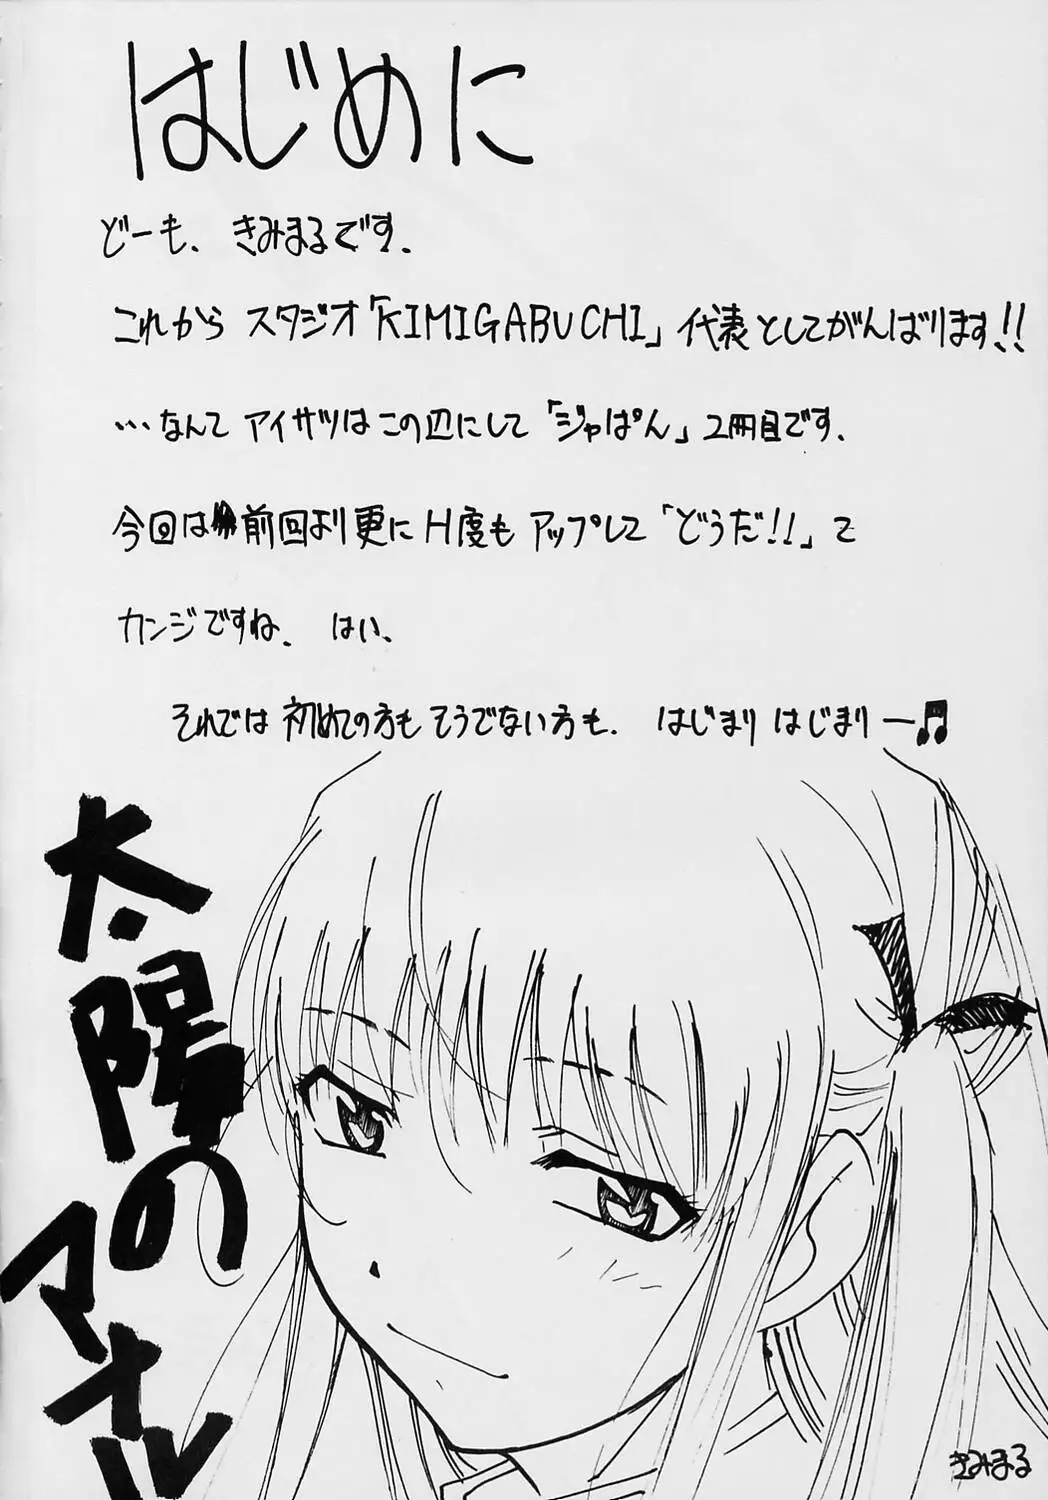 はじめに
どーも、きみまるです。
これから スタジオ「KIMIGABUCHI」代表としてがんばります!!
…なんて アイサツはこの辺にして「ジャぱん」2冊目です。
今回は前回より更にH度もアップして「どうだ!!」て
カンジですね。 はい。
それでは 初めての方も そうでない方も、 はじまり はじまりー♫
太陽の
マオル
きみまる